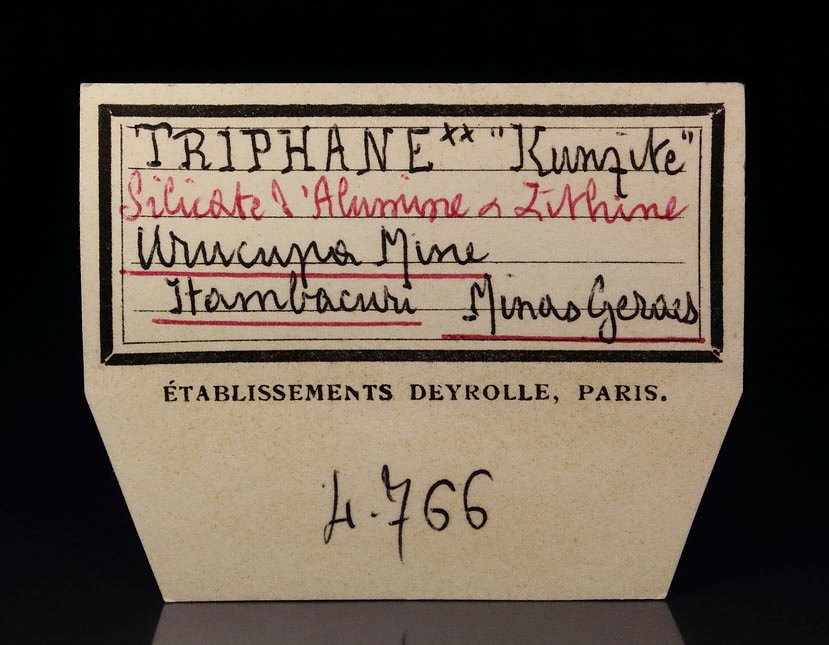 TRIPHANE xx "Kunzite"
Silicate d'Alumine & Lithine
Urucupa Mine
Itambacuri Minas Geraes
ÉTABLISSEMENTS DEYROLLE, PARIS.
4.766